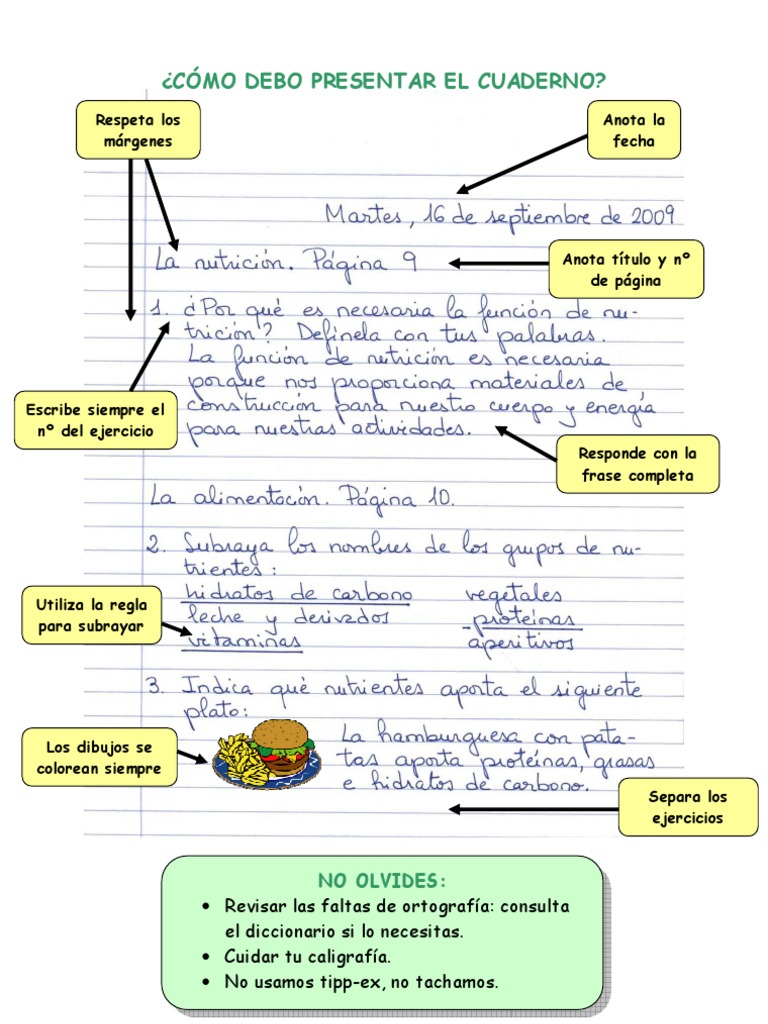 ¿CÓMO DEBO PRESENTAR EL CUADERNO?
Respeta los
márgenes
Anota la
fecha
Martes, 16 de septiembre de 2009
La nutrición. Página 9
Anota título y nº
de página
1. ¿Por qué es necesaria la función de nu-
trición? Defínela con tus palabras.
La función de nutrición es necesaria
porque nos proporciona materiales de
construcción para nuestro cuerpo y energía
para nuestras actividades.
Escribe siempre el
nº del ejercicio
Responde con la
frase completa
La alimentación. Página 10.
2. Subraya los nombres de los grupos de nu-
trientes:
hidratos de carbono vegetales
leche y derivados proteínas
vitaminas aperitivos
Utiliza la regla
para subrayar
3. Indica qué nutrientes aporta el siguiente
plato:
La hamburguesa con pata-
tas aporta proteínas, grasas
e hidratos de carbono.
Los dibujos se
colorean siempre
Separa los
ejercicios
NO OLVIDES:
• Revisar las faltas de ortografía: consulta
el diccionario si lo necesitas.
• Cuidar tu caligrafía.
• No usamos tipp-ex, no tachamos.